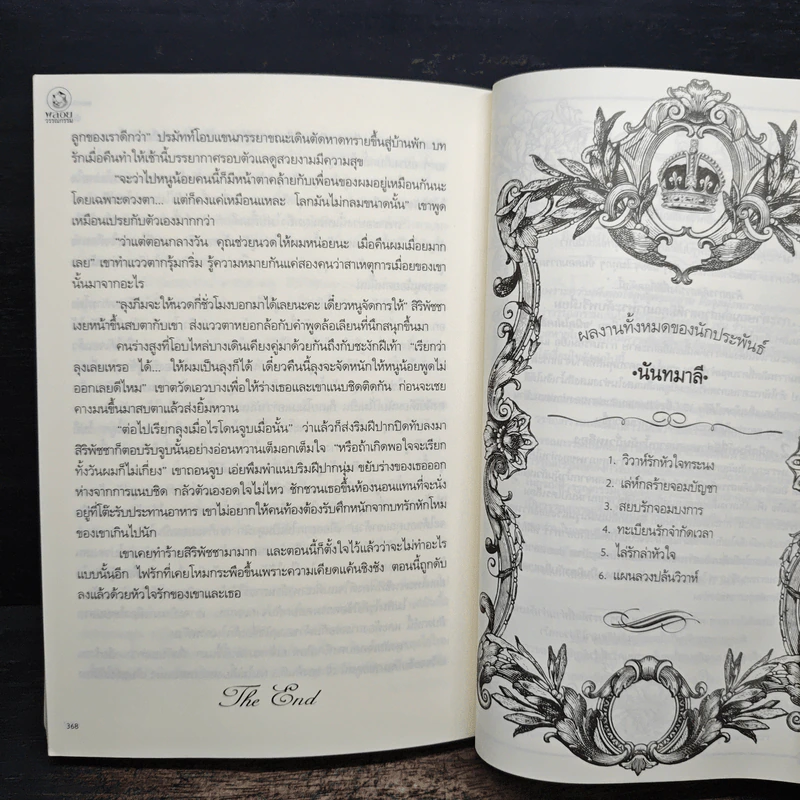 พลอย
วรรณกรรม
ลูกของเราดีกว่า” ปรมัทท์โอบแขนภรรยาขณะเดินตัดหาดทรายขึ้นสู่บ้านพัก บท
รักเมื่อคืนทำให้เช้านี้บรรยากาศรอบตัวแลดูสวยงามมีความสุข
“จะว่าไปหนูน้อยคนนี้ก็มีหน้าตาคล้ายกับเพื่อนของผมอยู่เหมือนกันนะ
โดยเฉพาะดวงตา... แต่ก็คงแค่เหมือนแหละ โลกมันไม่กลมขนาดนั้น” เขาพูด
เหมือนเปรยกับตัวเองมากกว่า
“ว่าแต่ตอนกลางวัน คุณช่วยนวดให้ผมหน่อยนะ เมื่อคืนผมเมื่อยมาก
เลย” เขาทำแววตากรุ้มกริ่ม รู้ความหมายกันแค่สองคนว่าสาเหตุการเมื่อยของเขา
นั้นมาจากอะไร
“ลุงภีมจะให้นวดกี่ชั่วโมงบอกมาได้เลยนะคะ เดี๋ยวหนูจัดการให้” สิริพัชชา
เงยหน้าขึ้นสบตากับเขา ส่งแววตาหยอกล้อกับคำพูดล้อเลียนที่นึกสนุกขึ้นมา
คนร่างสูงที่โอบไหล่บางเดินเคียงคู่มาด้วยกันถึงกับชะงักฝีเท้า “เรียกว่า
ลุงเลยเหรอ ได้... ให้ผมเป็นลุงก็ได้ เดี๋ยวคืนนี้ลุงจะจัดหนักให้หนูน้อยพูดไม่
ออกเลยดีไหม” เขาตวัดเอวบางเพื่อให้ร่างเธอและเขาแนบชิดติดกัน ก่อนจะเชย
คางมนขึ้นมาสบตาแล้วส่งยิ้มหวาน
“ต่อไปเรียกลุงเมื่อไรโดนจูบเมื่อนั้น” ว่าแล้วก็ส่งริมฝีปากปิดทับลงมา
สิริพัชชาก็ตอบรับจูบนั้นอย่างอ่อนหวานเต็มอกเต็มใจ “หรือถ้าเกิดพอใจจะเรียก
ทั้งวันผมก็ไม่เกี่ยง” เขาถอนจูบ เอ่ยพึมพำแนบริมฝีปากนุ่ม ขยับร่างของเธอออก
ห่างจากการแนบชิด กลัวตัวเองอดใจไม่ไหว ชักชวนเธอขึ้นห้องนอนแทนที่จะนั่ง
อยู่ที่โต๊ะรับประทานอาหาร เขาไม่อยากให้คนท้องต้องรับศึกหนักจากบทรักหักโหม
ของเขาเกินไปนัก
เขาเคยทำร้ายสิริพัชชามามาก และตอนนี้ก็ตั้งใจไว้แล้วว่าจะไม่ทำอะไร
แบบนั้นอีก ไฟรักที่เคยโหมกระพือขึ้นเพราะความเคียดแค้นชิงชัง ตอนนี้ถูกดับ
ลงแล้วด้วยหัวใจรักของเขาและเธอ
The End
368
ผลงานทั้งหมดของนักประพันธ์
•นันทมาลี•
1. วิวาห์รักหัวใจทระนง
2. เล่ห์กลร้ายจอมบัญชา
3. สยบรักจอมบงการ
4. ทะเบียนรักจำกัดเวลา
5. ไล่รักล่าหัวใจ
6. แผนลวงปล้นวิวาห์